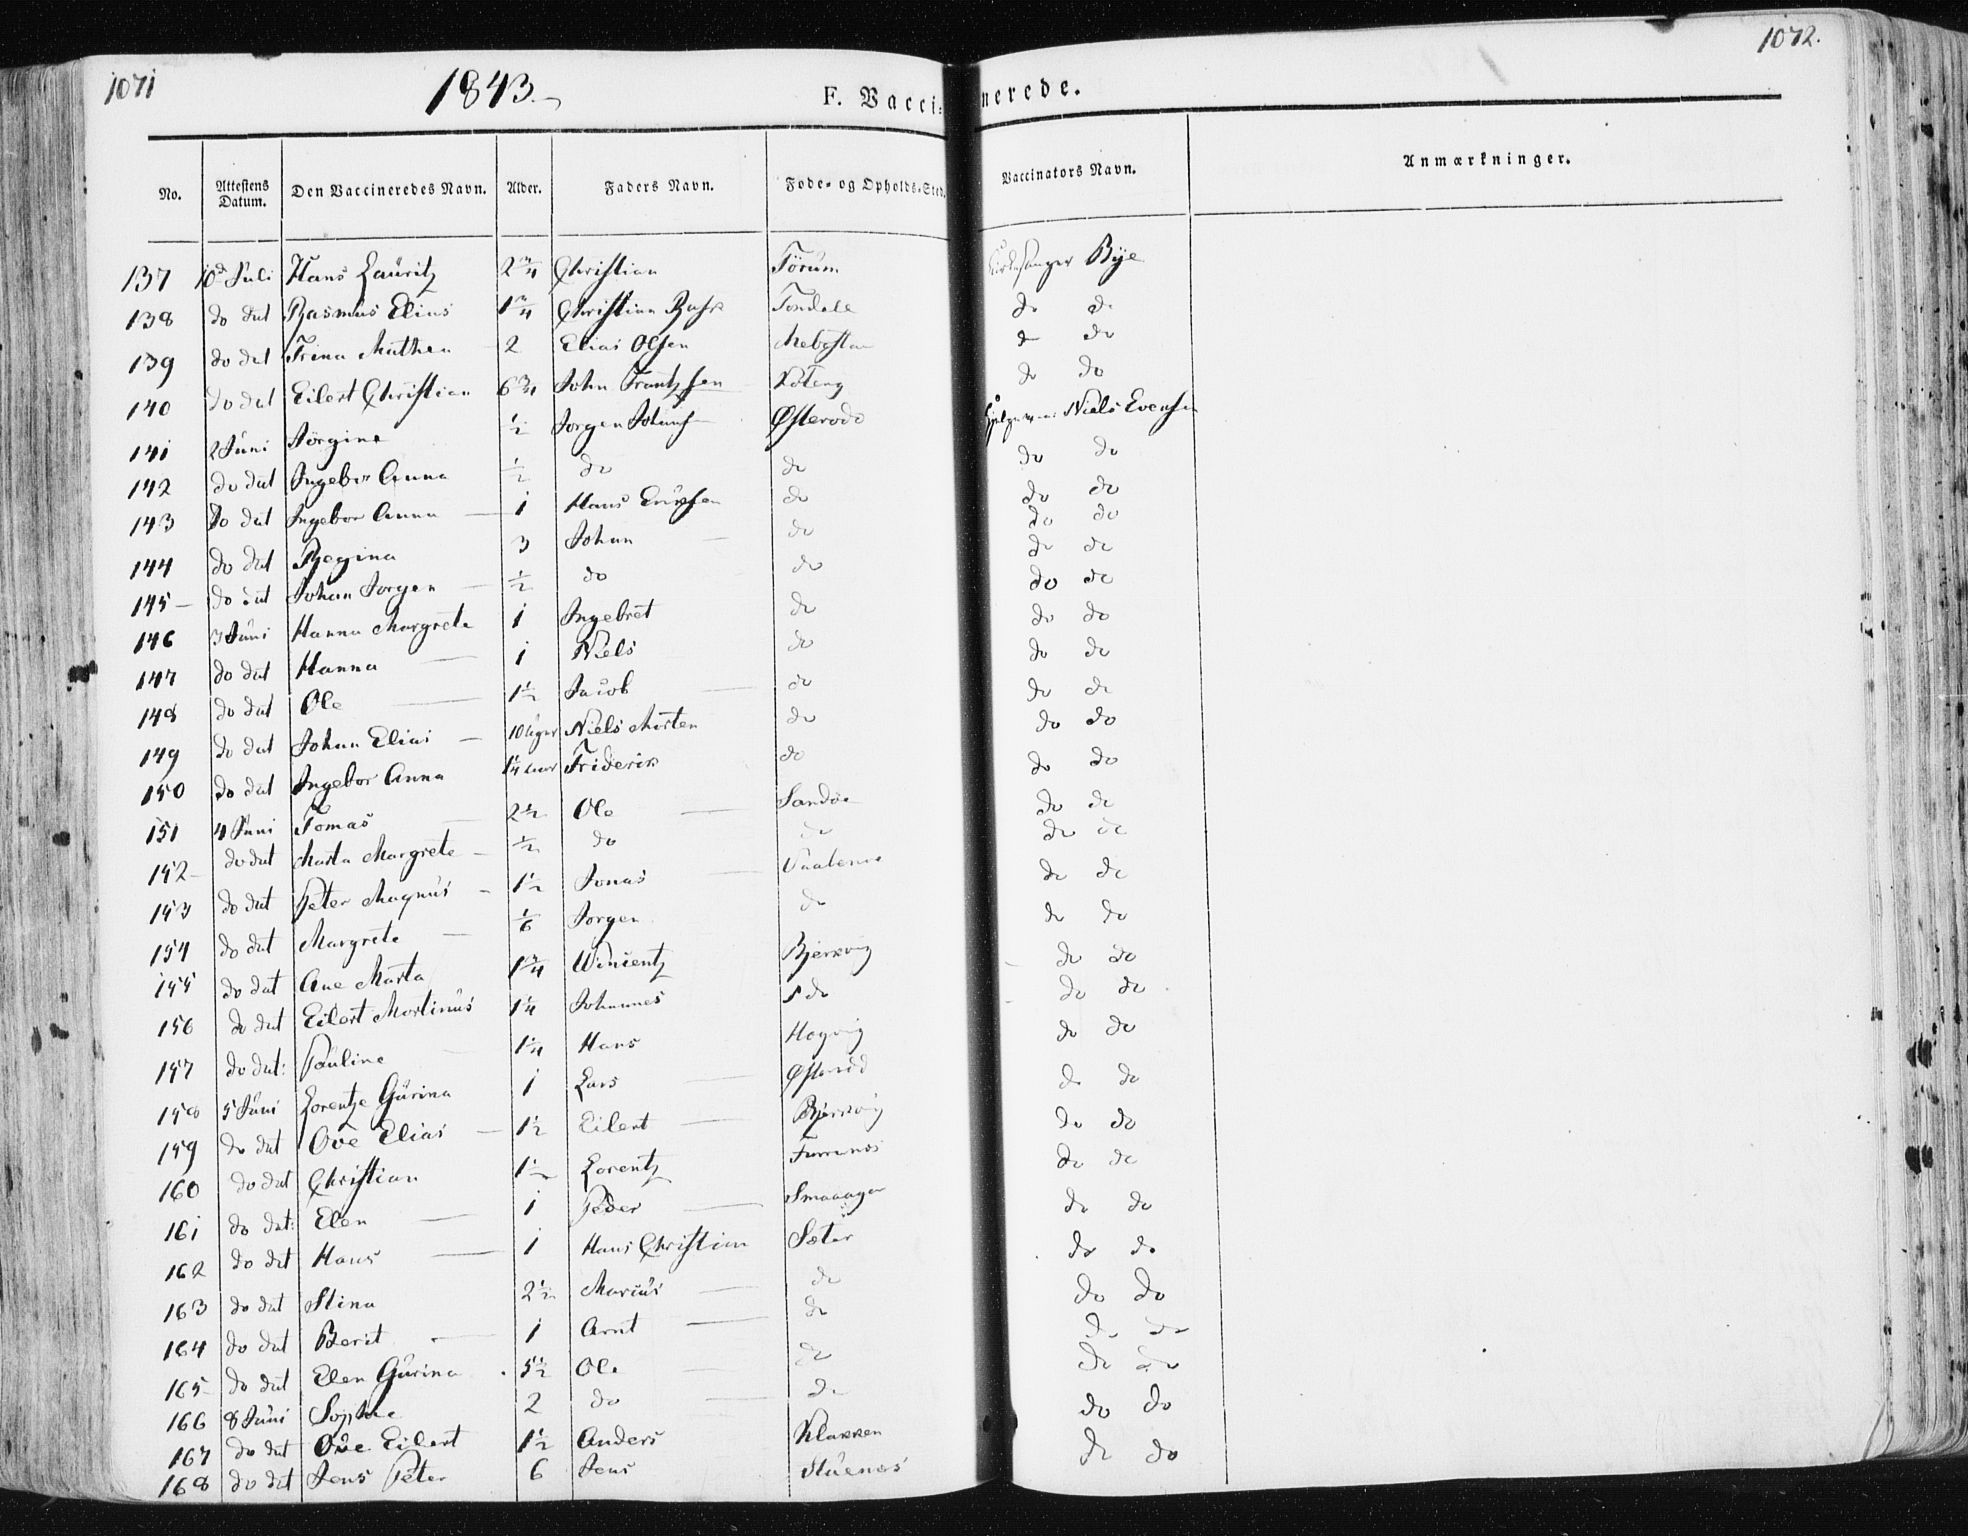 1071 1843. F. Vaccinerede. 1072.
No. Attestens Datum. Den Vaccineredes Navn. Alder. Faders Navn. Føde- og Opholds-Sted. Vaccinators Navn. Anmærkninger.
137 10de Juli Hans Lauritz 2 3/4 Christian Bye
138 do dat Rasmus Elias 1 3/4 Christian do do
139 do dat Trina 2 Elias Olsen do
140 do dat Eilert Christian 6 3/4 John do do
141 2 Juni Jörgine 1/2 Jorgen Østerode Niels Evensen
142 do dat Ingebor Anna 1/2 do do do do
143 do dat Ingebor Anna 1 Hans do do do
144 do dat Regina 3 Johan do do do
145 do dat Johan Jorgen 1/2 do do do do
146 3 Juni Hanna Margrete 1 Ingebret do do do
147 do dat Hanna 1 Niels do do do
148 do dat Ole 1 1/2 Jacob do do do
149 do dat Johan Elias 10 Uger Niels Morten do do do
150 do dat Ingebor Anna 1 1/4 Aar Friderik do do do
151 4 Juni Tomas 2 1/2 Ole Sandøe do do
152 do dat Marta Margrete 1/2 do do do do
153 do dat Peter Magnus 1 1/2 Jonas do do
154 do dat Margrete 1/6 Jorgen do do do
155 do dat Ane Marta 1 3/4 Bjerkvig do do
156 do dat Eilert Mortinus 1 1/4 Johannes do do do
157 do dat: Pauline 1 1/4 Hans Hegvig do do
158 5 Juni Lorentze Gurina 1 Lars do do
159 do dat Ove Elias 1 1/2 Eilert Bjerkvig do do
160 do dat Christian 1 1/2 Lorentz do do
161 do dat: Elen 1 Peder Smaaager do do
162 do dat Hans 1 Hans Christian Sæter do do
163 do dat Stina 2 1/2 Marius do do do
164 do dat Berit 1 Arnt do do do
165 do dat Elen Gurina 5 1/2 Ole do do do
166 8 Juni Sophie 2 do do do do
167 do dat Ove Eilert 1 1/2 Anders Klakken do do
168 do dat Jens Peter 6 Jens Stuenes